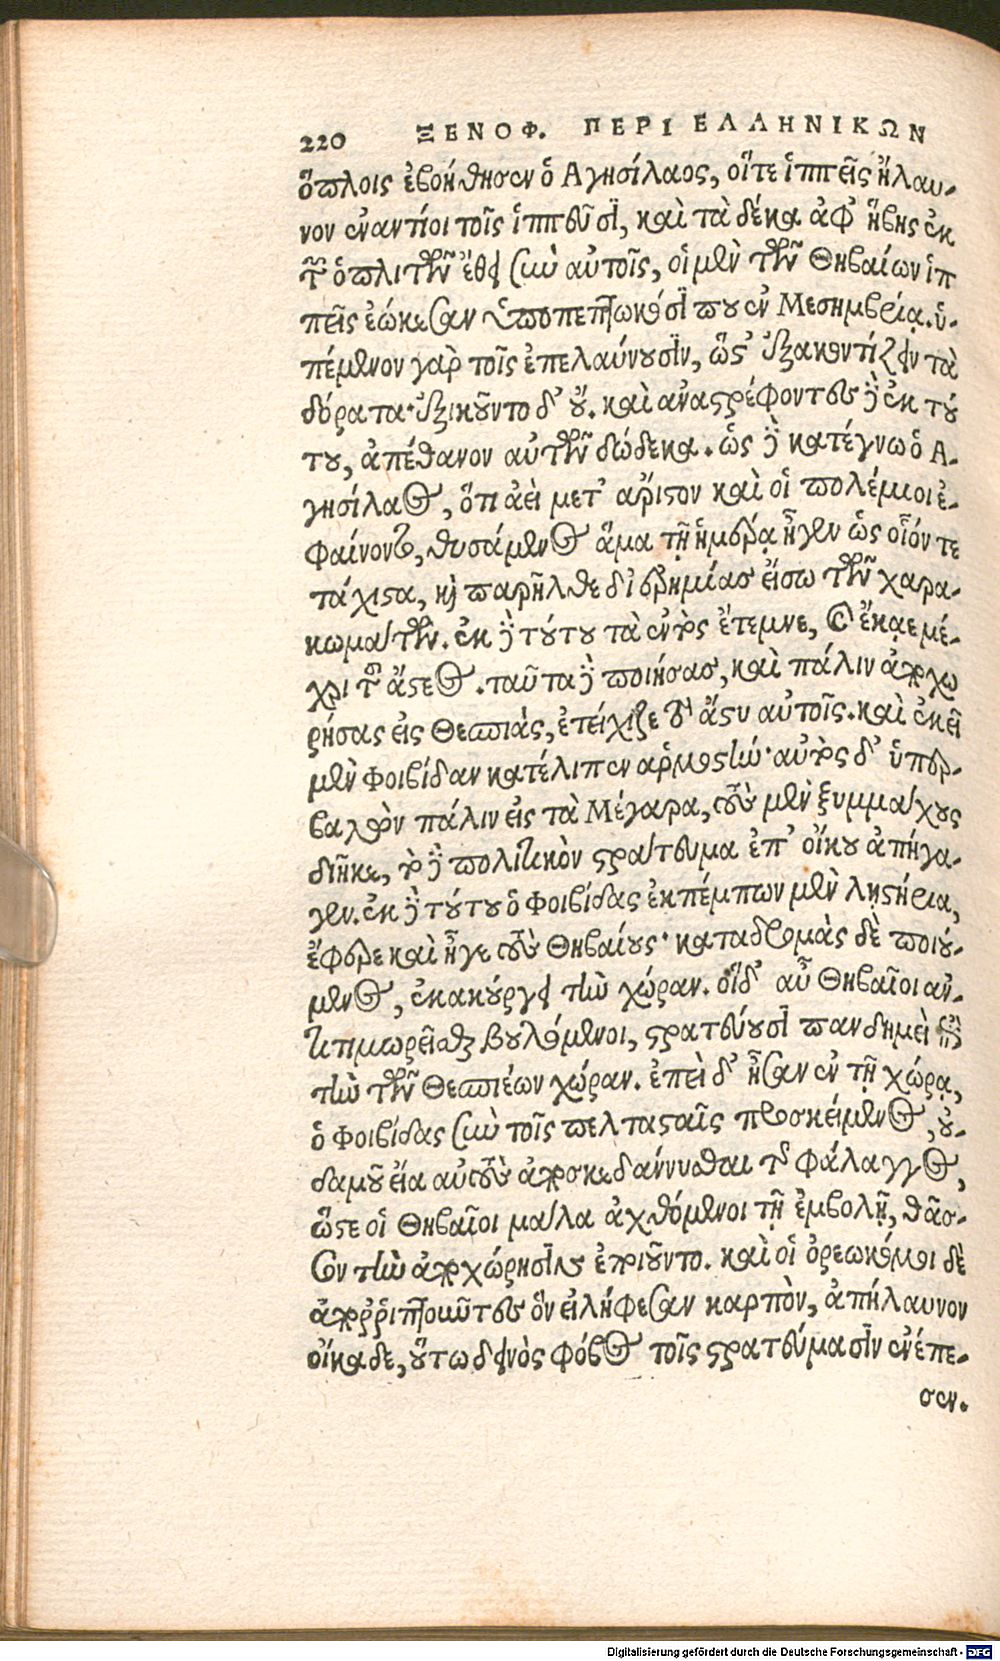 220 ΞΕΝΟΦ. ΠΕΡΙ ΕΛΛΗΝΙΚΩΝ
ὅπλοις ἐβοήθησεν ὁ Αγησίλαος, οἵτε ἱππεῖς ἤλαυ-
νον ἐναντίοι τοῖς ἱππεῦσι, καὶ τὰ δέκα ἀφ’ ἥβης ἐκ
τῶν ὁπλιτῶν ἔθει σὺν αὐτοῖς, οἱ μὲν τῶν Θηβαίων ἱπ
πεῖς ἐώκεσαν ὑποπεπτωκόσι που ἐν Μεσημβρίᾳ. ὑ-
πέμενον γὰρ τοῖς ἐπελαύνουσιν, ὥστ’ ἐξακοντίζειν τὰ
δόρατα· ἐξικοῦντο δ’ οὔ. καὶ ἀναστρέφοντες δὲ ἐκ τού
του, ἀπέθανον αὐτῶν δώδεκα. ὡς δὲ κατέγνω ὁ Α-
γησίλαος, ὅτι ἀεὶ μετ’ ἄριστον καὶ οἱ πολέμιοι ἐ-
φαίνοντο, θυσάμενος ἅμα τῇ ἡμέρᾳ ἦγεν ὡς οἷόν τε
τάχιστα, καὶ παρῆλθε δι’ ἐρημίας εἴσω τῶν χαρα-
κωμάτων. ἐκ δὲ τούτου τὰ ἐντὸς ἔτεμνε, καὶ ἔκαε μέ-
χρι τοῦ ἄστεος. ταῦτα δὲ ποιήσας, καὶ πάλιν ἀποχω
ρήσας εἰς Θεσπιὰς, ἐτείχιζε τὸ ἄστυ αὐτοῖς. καὶ ἐκεῖ
μὲν Φοιβίδαν κατέλιπεν ἁρμοστήν· αὐτὸς δ’ ὑπερ-
βαλὼν πάλιν εἰς τὰ Μέγαρα, τοὺς μὲν ξυμμάχους
διῆκε, τὸ δὲ πολιτικὸν στράτευμα ἐπ’ οἴκου ἀπήγα-
γεν. ἐκ δὲ τούτου ὁ Φοιβίδας ἐκπέμπων μὲν λῃστήρια,
ἔφερε καὶ ἦγε τοὺς Θηβαίους· καταδρομὰς δὲ ποιού-
μενος, ἐκακούργει τὴν χώραν. οἵδ’ αὖ Θηβαῖοι ἀν-
τιτιμωρεῖσθαι βουλόμενοι, στρατεύουσι πανδημεὶ ἐπὶ
τὴν τῶν Θεσπιέων χώραν. ἐπεὶ δ’ ἦσαν ἐν τῇ χώρᾳ,
ὁ Φοιβίδας σὺν τοῖς πελτασταῖς προσκείμενος, οὐ-
δαμοῦ εἴα αὐτοὺς ἀποσκεδάννυσθαι τῆς φάλαγγος,
ὥστε οἱ Θηβαῖοι μάλα ἀχθόμενοι τῇ ἐμβολῇ, θᾶσ-
σον τὴν ἀποχώρησιν ἐποιοῦντο. καὶ οἱ ὀρεωκόμοι δὲ
ἀποῤῥιπτοῦντες ὃν εἰλήφεσαν καρπὸν, ἀπήλαυνον
οἴκαδε, οὕτω δεινὸς φόβος τοῖς στρατεύμασιν ἐνέπε-
σεν.
Digitalisierung gefördert durch die Deutsche Forschungsgemeinschaft - DFG